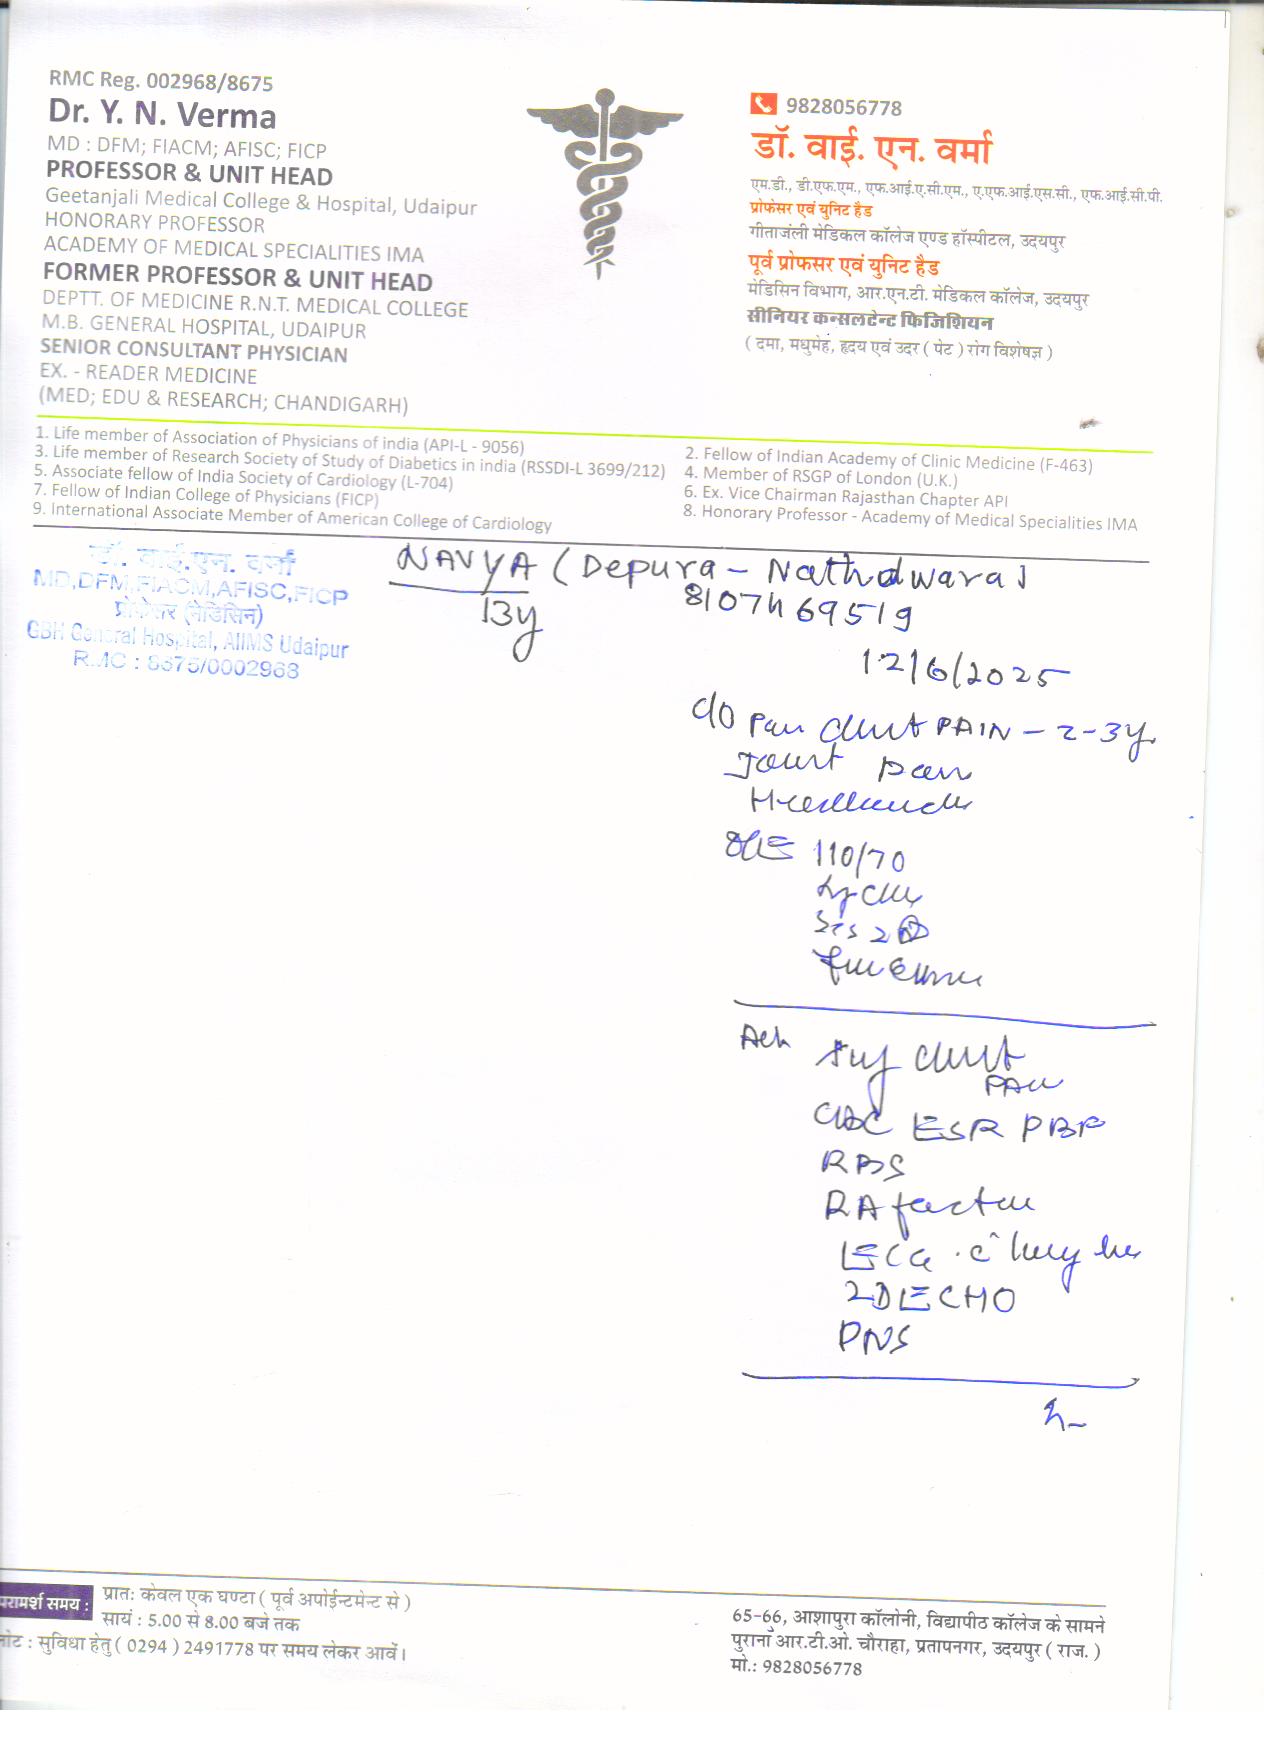 RMC Reg. 002968/8675
Dr. Y. N. Verma
MD : DFM; FIACM; AFISC; FICP
PROFESSOR & UNIT HEAD
Geetanjali Medical College & Hospital, Udaipur
HONORARY PROFESSOR
ACADEMY OF MEDICAL SPECIALITIES IMA
FORMER PROFESSOR & UNIT HEAD
DEPTT. OF MEDICINE R.N.T. MEDICAL COLLEGE
M.B. GENERAL HOSPITAL, UDAIPUR
SENIOR CONSULTANT PHYSICIAN
EX. - READER MEDICINE
(MED; EDU & RESEARCH; CHANDIGARH)
9828056778
डॉ. वाई. एन. वर्मा
एम.डी., डी.एफ.एम., एफ.आई.ए.सी.एम., ए.एफ.आई.एस.सी., एफ.आई.सी.पी.
प्रोफेसर एवं युनिट हैड
गीताजंली मेडिकल कॉलेज एण्ड हॉस्पीटल, उदयपुर
पूर्व प्रोफसर एवं युनिट हैड
मेडिसिन विभाग, आर.एन.टी. मेडिकल कॉलेज, उदयपुर
सीनियर कन्सलटेन्ट फिजिशियन
( दमा, मधुमेह, हृदय एवं उदर ( पेट ) रोग विशेषज्ञ )
1. Life member of Association of Physicians of india (API-L - 9056)
2. Fellow of Indian Academy of Clinic Medicine (F-463)
3. Life member of Research Society of Study of Diabetics in india (RSSDI-L 3699/212)
4. Member of RSGP of London (U.K.)
5. Associate fellow of India Society of Cardiology (L-704)
6. Ex. Vice Chairman Rajasthan Chapter API
7. Fellow of Indian College of Physicians (FICP)
8. Honorary Professor - Academy of Medical Specialities IMA
9. International Associate Member of American College of Cardiology
डॉ. वाई.एन. वर्मा
MD,DFM,FIACM,AFISC,FICP
प्रोफेसर (मेडिसिन)
GBH General Hospital, AIIMS Udaipur
RMC : 8675/0002963
NAVYA (Depura - Nathdwara)
13y
8107469519
12/6/2025
C/O Pain Chest PAIN - 2-3y
Joint Pain
110/70
S1S2 N
Chest
Pain
CBC ESR PBF
RBS
RA factor
ECG
2D ECHO
PNS
परामर्श समय :
प्रातः केवल एक घण्टा ( पूर्व अपोईन्टमेन्ट से )
सायं : 5.00 से 8.00 बजे तक
नोट : सुविधा हेतु ( 0294 ) 2491778 पर समय लेकर आवें।
65-66, आशापुरा कॉलोनी, विद्यापीठ कॉलेज के सामने
पुराना आर.टी.ओ. चौराहा, प्रतापनगर, उदयपुर ( राज. )
मो.: 9828056778